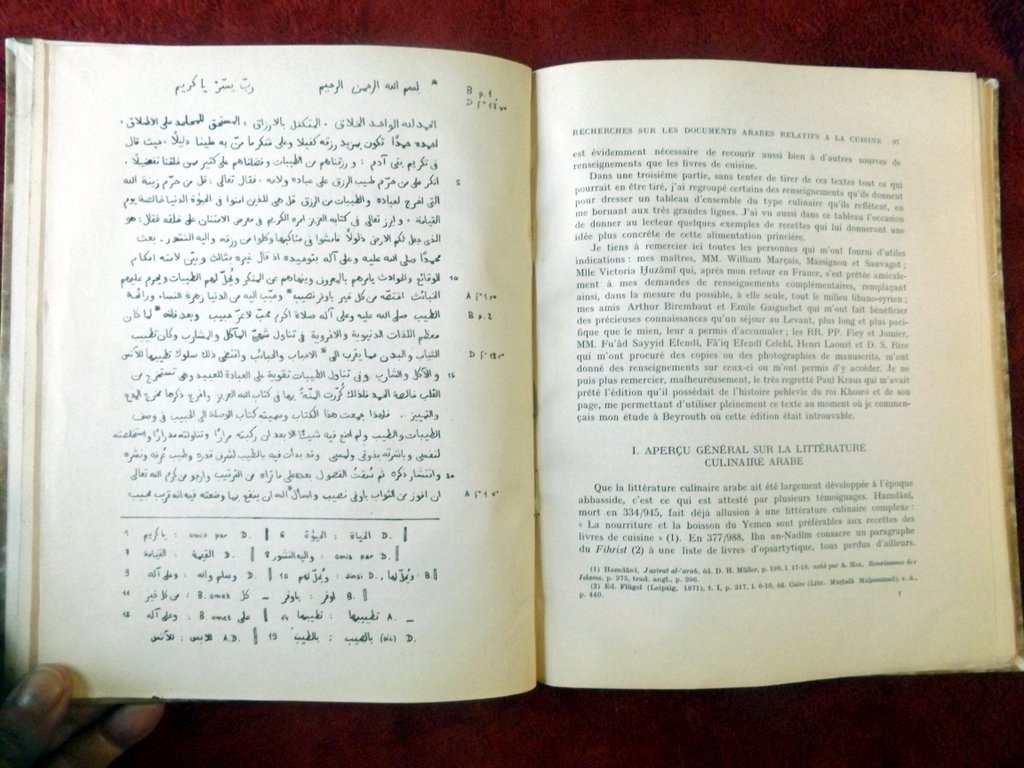 * بسم الله الرحمن الرحيم ربّ يسّر يا كريم
B p. 1
D f° 17 v°
الحمد لله الواحد الخلاق ، المتكفل بالارزاق ، المستحق للمحامد على الاطلاق ،
احمده حمدًا تكون بمزيد رزقه كفيلا وعلى شكر ما منّ به علينا دليلًا ، حيث قال
في تكريم بني آدم : ورزقناهم من الطيبات وفضلناهم على كثير ممن خلقنا تفضيلًا ،
انكر على من حرّم طيب الرزق على عباده ولامه ، فقال تعالى : قل من حرّم زينة الله 5
التي اخرج لعباده والطيبات من الرزق قل هي للذين امنوا في الحيوة الدنيا خالصة يوم
القيامة ، وابرز تعالى في كتابه العزيز امره الكريم في معرض الامتنان على خلقه فقال : هو
الذي جعل لكم الارض ذلولًا فامشوا في مناكبها وكلوا من رزقه واليه النشور . بعث
محمدًا صلى الله عليه وعلى آله بتوحيده اذ قال غيره بثالث وبيّن لامته احكام
الوقائع والحوادث يامرهم بالمعروف وينهاهم عن المنكر ويُحلّ لهم الطيبات ويحرم عليهم 10
الخبائث اختصّه من كل خير باوفر نصيب * وحبّب اليه من الدنيا زهرة النساء ورائحة A f° 1 v°
الطيب صلى الله عليه وعلى آله صلاة اكرم محبّ لاعز حبيب وبعد فلمّا * كان B p. 2
معظم اللذات الدنيوية والاخروية في تناول شهيّ المآكل والمشارب وكان تطييب
الثياب والبدن مما يقرب الى * الاحباب والحبائب واقتضى ذلك سلوك تطييبها للأنس D f° 18 v°
والآكل والشارب وفي تناول الطيبات تقوية على العبادة للعبيد وهي تستخرج من 15
القلب خالصة الحمد فلذلك كُرّرت المنّة بها في كتاب الله العزيز
والتمييز . فلهذا جمعت هذا الكتاب وسميته كتاب الوصلة الى الحبيب في وصف
الطيبات والطيب ولم اضع فيه شيئًا الا بعد ان ركبته مرارًا وتناولته مدرارًا واستخلصته
لنفسي وباشرته بذوقي ولمسي وقد بدأت فيه بالطيب لشرف قدره وطيب عرفه ونشره
وانتشار ذكره ثم سُقتُ الفصول بعده على ما تراه من الترتيب وارجو من كرم الله تعالى 20
ان افوز من الثواب باوفى نصيب واسأل * الله ان ينفع بما وضعته فيه انه قريب مجيب A f° 1 v°
1 يا كريم : omis par D. ‖ 6 الحيوة : الحياة D. ‖
7 القيامة : القيمة D. ‖ 8 واليه النشور : omis par D. ‖
9 وعلى آله : وسلم وانه D. ‖ 10 ويُحلّ لهم : ainsi D., ويُحلّها B. ‖
11 من كل خير : B. omet كل — باوفر : اوفر B. ‖
12 وعلى آله : B. omet ‖ 14 تطييبها : تطييبها A. —
للأنس : للابس A.D. ‖ 19 بالطيب : بالصيب (sic) D.
RECHERCHES SUR LES DOCUMENTS ARABES RELATIFS A LA CUISINE 97
est évidemment nécessaire de recourir aussi bien à d'autres sources de
renseignements que les livres de cuisine.
Dans une troisième partie, sans tenter de tirer de ces textes tout ce qui
pourrait en être tiré, j'ai regroupé certains des renseignements qu'ils donnent
pour dresser un tableau d'ensemble du type culinaire qu'ils reflètent, en
me bornant aux très grandes lignes. J'ai vu aussi dans ce tableau l'occasion
de donner au lecteur quelques exemples de recettes qui lui donneront une
idée plus concrète de cette alimentation princière.
Je tiens à remercier ici toutes les personnes qui m'ont fourni d'utiles
indications : mes maîtres, MM. William Marçais, Massignon et Sauvaget ;
Mlle Victoria Ḫuzāmī qui, après mon retour en France, s'est prêtée amicale-
ment à mes demandes de renseignements complémentaires, remplaçant
ainsi, dans la mesure du possible, à elle seule, tout le milieu libano-syrien ;
mes amis Arthur Birembaut et Emile Gaignebet qui m'ont fait bénéficier
des précieuses connaissances qu'un séjour au Levant, plus long et plus paci-
fique que le mien, leur a permis d'accumuler ; les RR. PP. Fiey et Jomier,
MM. Fu'ād Sayyid Efendi, Fā'iq Efendi Celebi, Henri Laoust et D. S. Rice
qui m'ont procuré des copies ou des photographies de manuscrits, m'ont
donné des renseignements sur ceux-ci ou m'ont permis d'y accéder. Je ne
puis plus remercier, malheureusement, le très regretté Paul Kraus qui m'avait
prêté l'édition qu'il possédait de l'histoire pehlevie du roi Khosro et de son
page, me permettant d'utiliser pleinement ce texte au moment où je commen-
çais mon étude à Beyrouth où cette édition était introuvable.
I. APERÇU GÉNÉRAL SUR LA LITTÉRATURE
CULINAIRE ARABE
Que la littérature culinaire arabe ait été largement développée à l'époque
abbasside, c'est ce qui est attesté par plusieurs témoignages. Hamdānī,
mort en 334/945, fait déjà allusion à une littérature culinaire complexe :
« La nourriture et la boisson du Yemen sont préférables aux recettes des
livres de cuisine » (1). En 377/988, Ibn an-Nadīm consacre un paragraphe
du Fihrist (2) à une liste de livres d'opsartytique, tous perdus d'ailleurs.
(1) Hamdānī, Jazīrat al-'arab, éd. D. H. Müller, p. 198, l. 17-18, noté par A. Mez, Renaissance des
Islams, p. 375, trad. angl., p. 396.
(2) Ed. Flügel (Leipzig, 1871), t. I, p. 317, l. 6-10, éd. Caire (Libr. Muṣṭafā Muḥammad), s. d.,
p. 440.